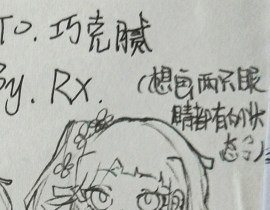 TO. 巧克腻
By. Rx.
(想画两只眼
睛都有的状
态了)